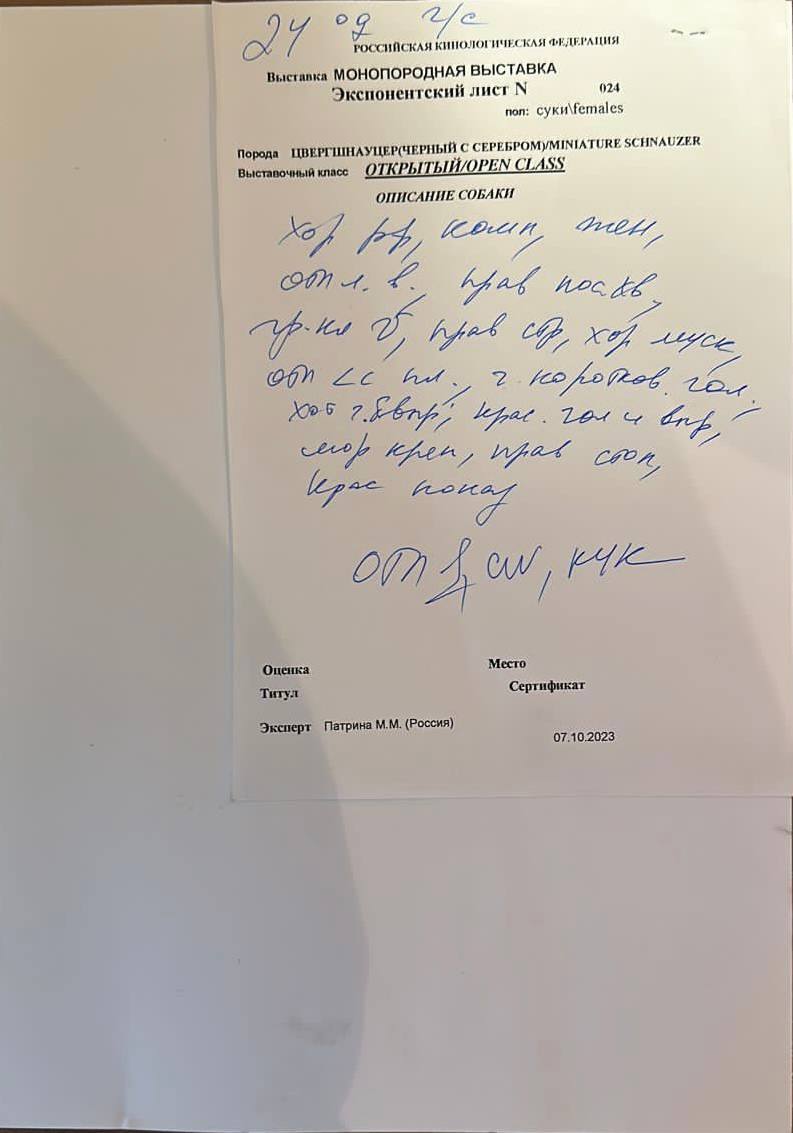 24 од ч/с
РОССИЙСКАЯ КИНОЛОГИЧЕСКАЯ ФЕДЕРАЦИЯ
Выставка МОНОПОРОДНАЯ ВЫСТАВКА
Экспонентский лист N 024
пол: суки\females
Порода ЦВЕРГШНАУЦЕР(ЧЕРНЫЙ С СЕРЕБРОМ)/MINIATURE SCHNAUZER
Выставочный класс ОТКРЫТЫЙ/OPEN CLASS
ОПИСАНИЕ СОБАКИ
хор рр, комп, жен,
отл. в., прав пос хв,
гр-кл v, прав стр, хор муск,
отл <с пл., ч. коротков. гол.,
крас. гол и впр,
мор креп, прав стоп,
крас показ
отл CW, КЧК
Оценка Место
Титул Сертификат
Эксперт Патрина М.М. (Россия)
07.10.2023